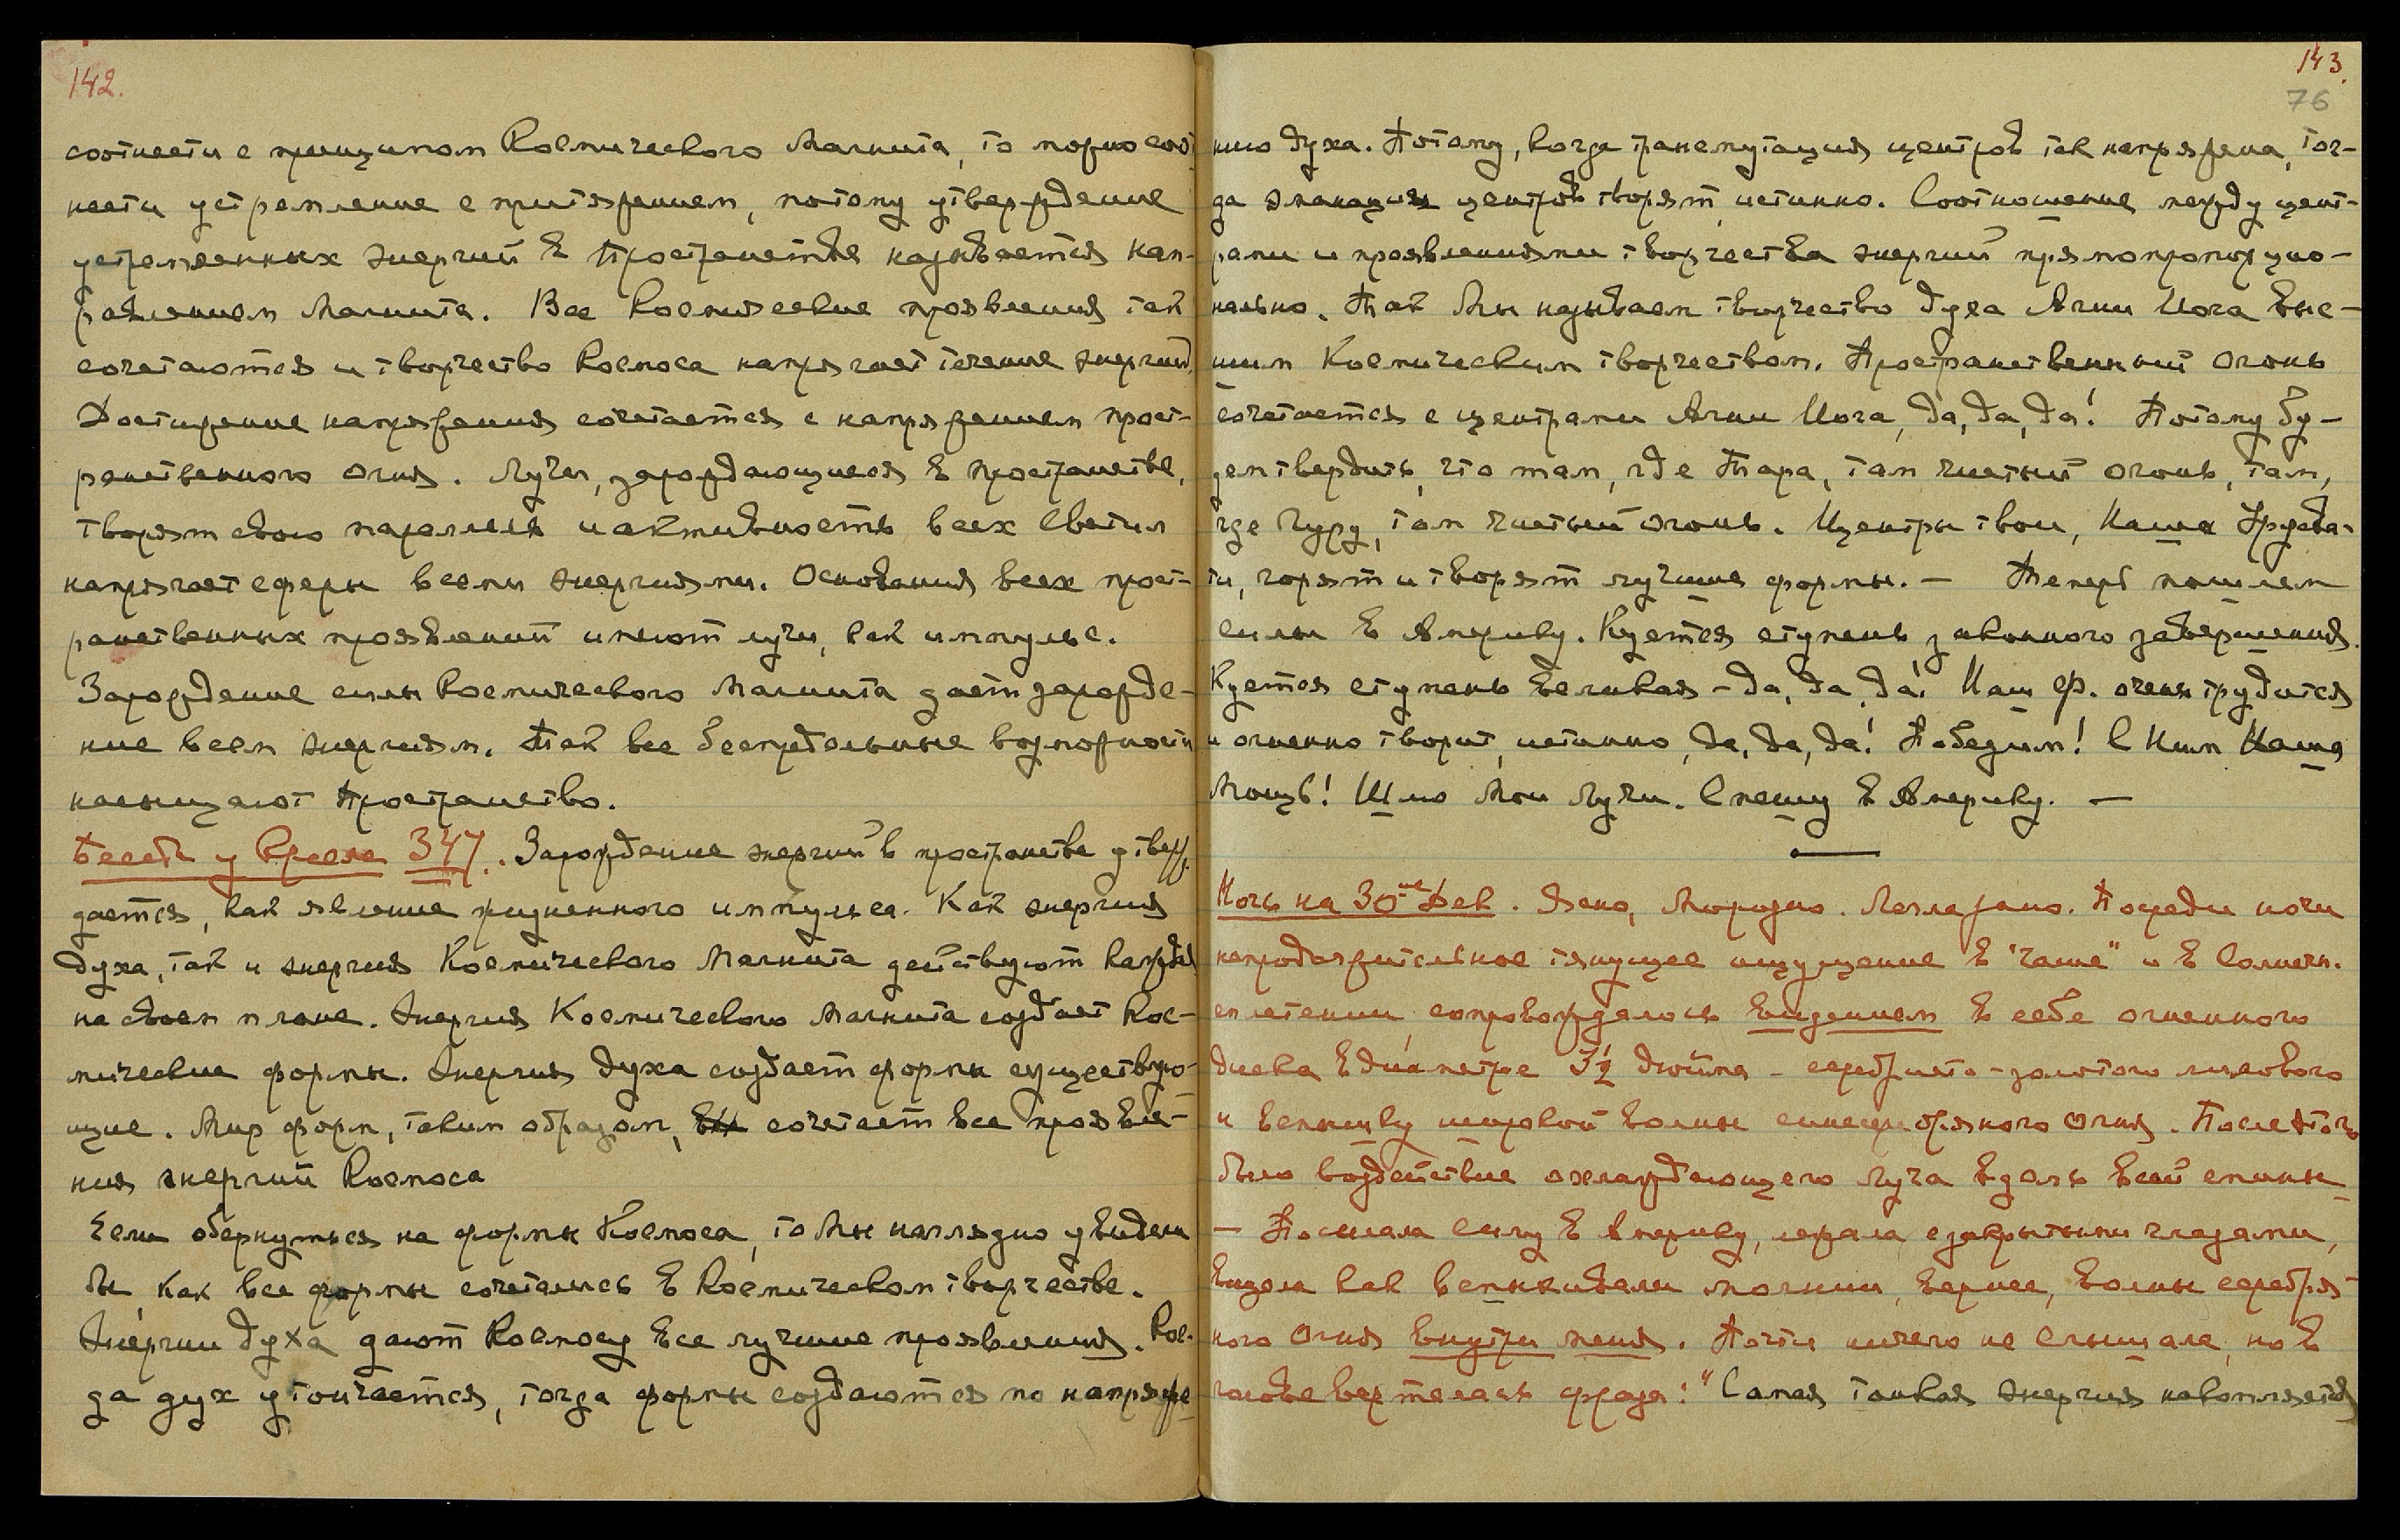 142.
соотнести с принципом Космического Магнита, то можно соот-
нести устремление с притяжением, потому утверждение
устремленных энергий в Пространстве называется нап-
равлением Магнита. Все Космические проявления так
сочетаются и творчество Космоса напрягает течение энергий.
Достижение напряжения сочетается с напряжением прост-
ранственного огня. Лучи, зарождающиеся в пространстве,
творят свою параллель и активность всех Светил
напрягает сферы всеми энергиями. Основания всех прост-
ранственных проявлений имеют лучи, как импульс.
Зарождение силы Космического Магнита дает зарожде-
ние всем энергиям. Так все беспредельные возможности
насыщают Пространство.
Беседа у Кресла 347. Зарождение энергий в пространстве утверж-
дается, как явление жизненного импульса. Как энергия
духа, так и энергия Космического Магнита действуют каждая
на своем плане. Энергия Космического Магнита создает Кос-
мические формы. Энергия духа создает формы существую-
щие. Мир форм, таким образом, сочетает все проявле-
ния энергий Космоса
Если обернуться на формы Космоса, то Мы наглядно увидели
бы, как все формы сочетались в Космическом творчестве.
Энергии духа дают Космосу все лучшие проявления. Ког-
да дух утончается, тогда формы создаются по напряже-
143.
76
нию духа. Потому, когда трансмутация центров так напряжена, тог-
да эманации центров творят, истинно. Соотношение между цент-
рами и проявлениями творчества энергий прямопропорцио-
нально. Так Мы называем творчество духа Агни Йога выс-
шим Космическим творчеством. Пространственный огонь
сочетается с центрами Агни Йога, да, да, да! Потому бу-
дем твердить, что там, где Тара, там чистый огонь, там,
где Гуру, там чистый огонь. И центры твои, Наша Урусва-
ти, горят и творят лучшие формы. — Теперь пошлем
силы в Америку. Куется ступень законного завершения.
Куется ступень великая – да, да, да! Наш Ф. очень трудится
и огненно творит, истинно, да, да, да! Победим! С Ним Наша
Мощь! Шлю Мои Лучи. Спешу в Америку. —
Ночь на 30ое Дек. Ясно, Морозно. Посреди ночи
непродолжительное тянущее ощущение в "чаше" и в Солнечн.
сплетении, сопровождалось видением в себе огненного
диска в диаметре 3½ дюйма – серебристо-золотого лилового
и вспышку широкой волны огня. После того
было воздействие охлаждающего луча вдоль всей спины
— Посылала силу в Америку, лежала с закрытыми глазами,
видела как вспыхивали молнии, вернее, волны серебря-
ного Огня внутри меня. Почти ничего не слышала, но в
голове вертелась фраза: "Самая тонкая энергия накопляется